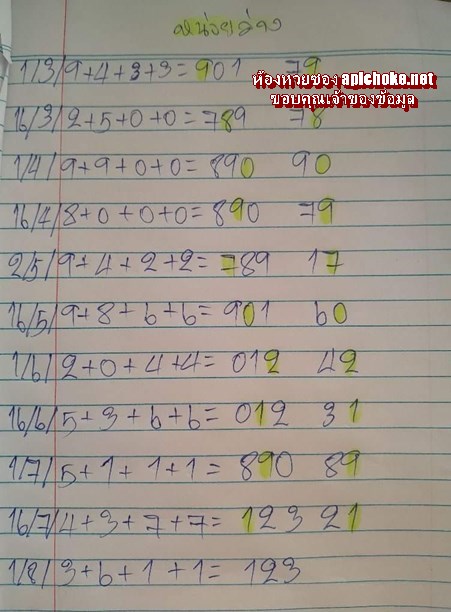 หน่วยล่าง
1/3/9+4+3+3=901 79
ห้องหวยซอง apichoke.net
ขอบคุณเจ้าของข้อมูล
16/3/2+5+0+0=789 78
1/4/9+9+0+0=890 90
16/4/8+0+0+0=890 79
2/5/9+4+2+2=789 17
16/5/9+8+6+6=901 60
1/6/2+0+4+4=012 42
16/6/5+3+6+6=012 31
1/7/5+1+1+1=890 89
16/7/4+3+7+7=123 21
1/8/3+6+1+1=123